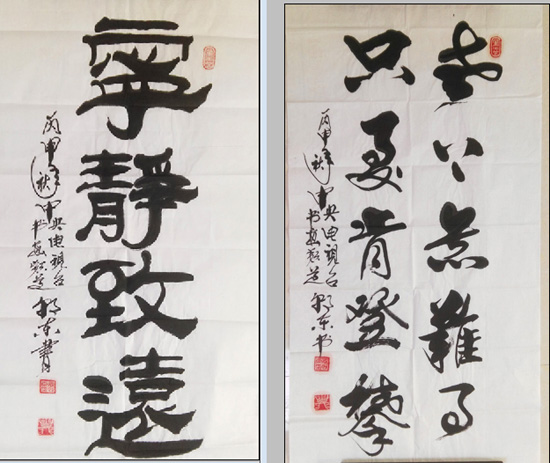 寧靜致遠
丙申年秋中央电视台
书画频道
世上無難事
只要肯登攀
丙申年秋中央电视台
书画频道